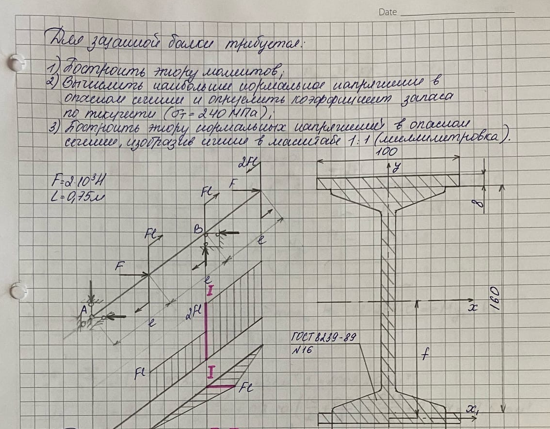 Date
Для заданной балки требуется:
1) Построить эпюру моментов;
2) Вычислить наибольшее нормальное напряжение в
опасном сечении и определить коэффициент запаса
по текучести (σт = 240 МПа);
3) Построить эпюру нормальных напряжений в опасном
сечении, изобразив сечение в масштабе 1:1 (миллиметровка).
F=2·10³Н
L=0,75м
2Fl
Fl
F
Fl
B
F
A
l
l
l
I
2Fl
Fl
I
Fl
100
y
8
160
x
f
ГОСТ 8239-89
N16
x₁